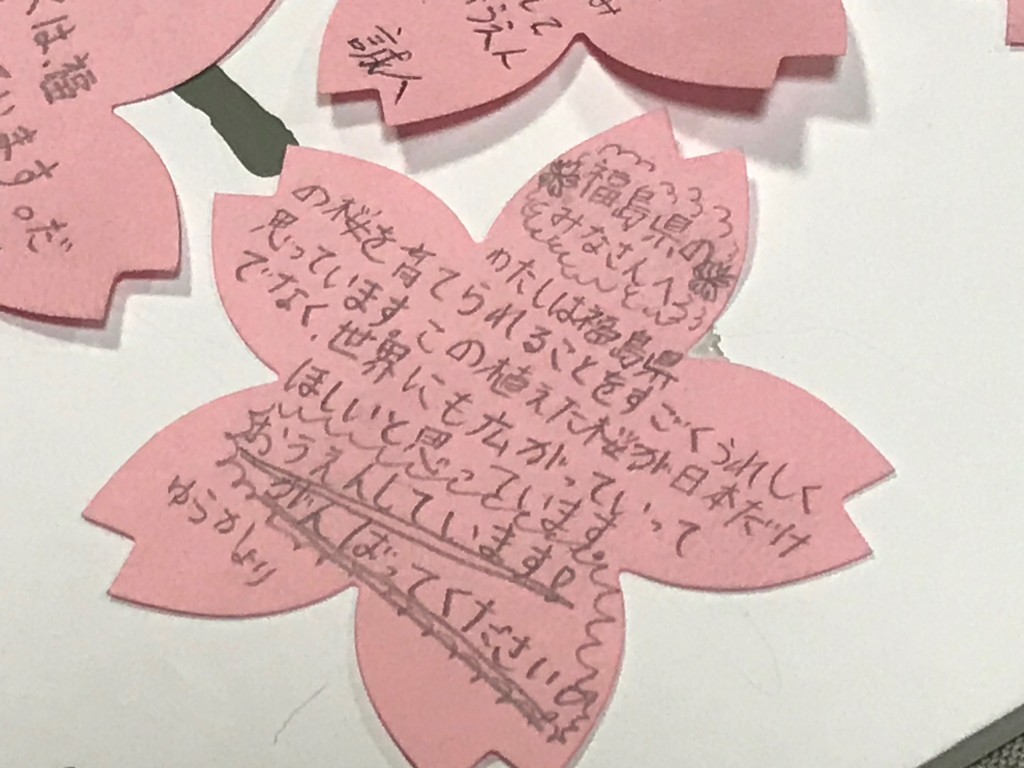 は、福
います。だ
み
して
誠人
福島県の
みなさんへ
わたしは福島県
の桜を育てられることをすごくうれしく
思っています。この植えた桜が日本だけ
でなく、世界にも広がっていって
ほしいと思っています。
おうえんしています!
がんばってください
ゆうかより